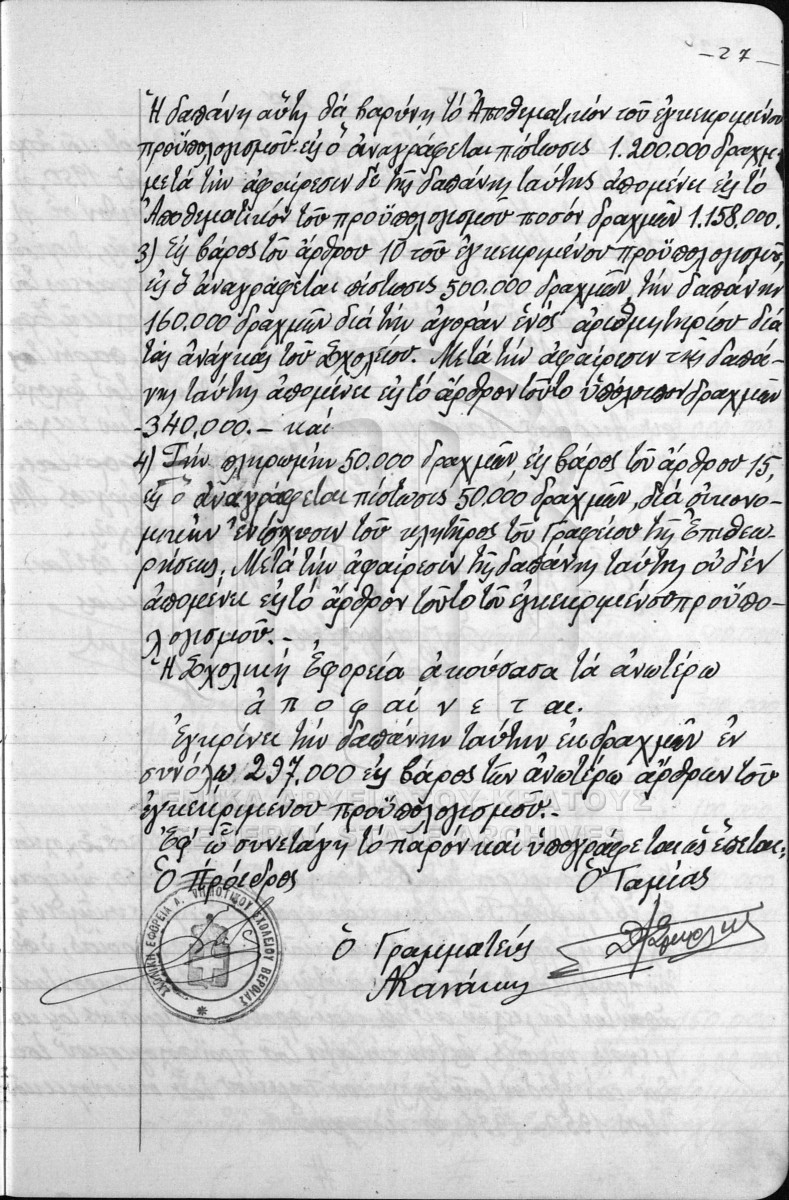 -27-
Ἡ δαπάνη αὕτη θά βαρύνῃ τό Ἀποθεματικόν τοῦ ἐγκεκριμένου
προϋπολογισμοῦ εἰς ὅ ἀναγράφεται πίστωσις 1.200.000 δραχμ
μετά τήν ἀφαίρεσιν δέ τῆς δαπάνης ταύτης ἀπομένει εἰς τό
Ἀποθεματικόν τοῦ προϋπολογισμοῦ ποσόν δραχμῶν 1.158.000.
3) Εἰς βάρος τοῦ ἄρθρου 10 τοῦ ἐγκεκριμένου προϋπολογισμοῦ,
εἰς ὅ ἀναγράφεται πίστωσις 500.000 δραχμῶν, τήν δαπάνην
160.000 δραχμῶν διά τήν ἀγοράν ἑνός ἀριθμητηρίου διά
τάς ἀνάγκας τοῦ Σχολείου. Μετά τήν ἀφαίρεσιν τῆς δαπά-
νης ταύτης ἀπομένει εἰς τό ἄρθρον τοῦτο ὑπόλοιπον δραχμῶν
-340.000.- καί
4) Τήν πληρωμήν 50.000 δραχμῶν εἰς βάρος τοῦ ἄρθρου 15,
εἰς ὅ ἀναγράφεται πίστωσις 50.000 δραχμῶν, διά οἰκονο-
μικήν ἐνίσχυσιν τοῦ κλητῆρος τοῦ Γραφείου τῆς Ἐπιθεω-
ρήσεως, Μετά τήν ἀφαίρεσιν τῆς δαπάνης ταύτης οὐδέν
ἀπομένει εἰς τό ἄρθρον τοῦτο τοῦ ἐγκεκριμένου προϋπο-
λογισμοῦ.-
Ἡ Σχολική Ἐφορεία ἀκούσασα τά ἀνωτέρω
ἀποφαίνεται.
Ἐγκρίνει τήν δαπάνην ταύτην ἐκ δραχμῶν ἐν
συνόλῳ 297.000 εἰς βάρος τῶν ἀνωτέρω ἄρθρων τοῦ
ἐγκεκριμένου προϋπολογισμοῦ.-
ΓΕΝΙΚΑ ΑΡΧΕΙΑ ΤΟΥ ΚΡΑΤΟΥΣ
GENERAL STATE ARCHIVES
Ἐφ' ᾧ συνετάγη τό παρόν καί ὑπογράφεται ὡς ἕπεται:
Ὁ Πρόεδρος Ὁ Ταμίας
ΣΧΟΛΙΚΗ ΕΦΟΡΕΙΑ Α. ΔΗΜΟΤΙΚΟΥ ΣΧΟΛΕΙΟΥ ΒΕΡΟΙΑΣ
Ὁ Γραμματεύς